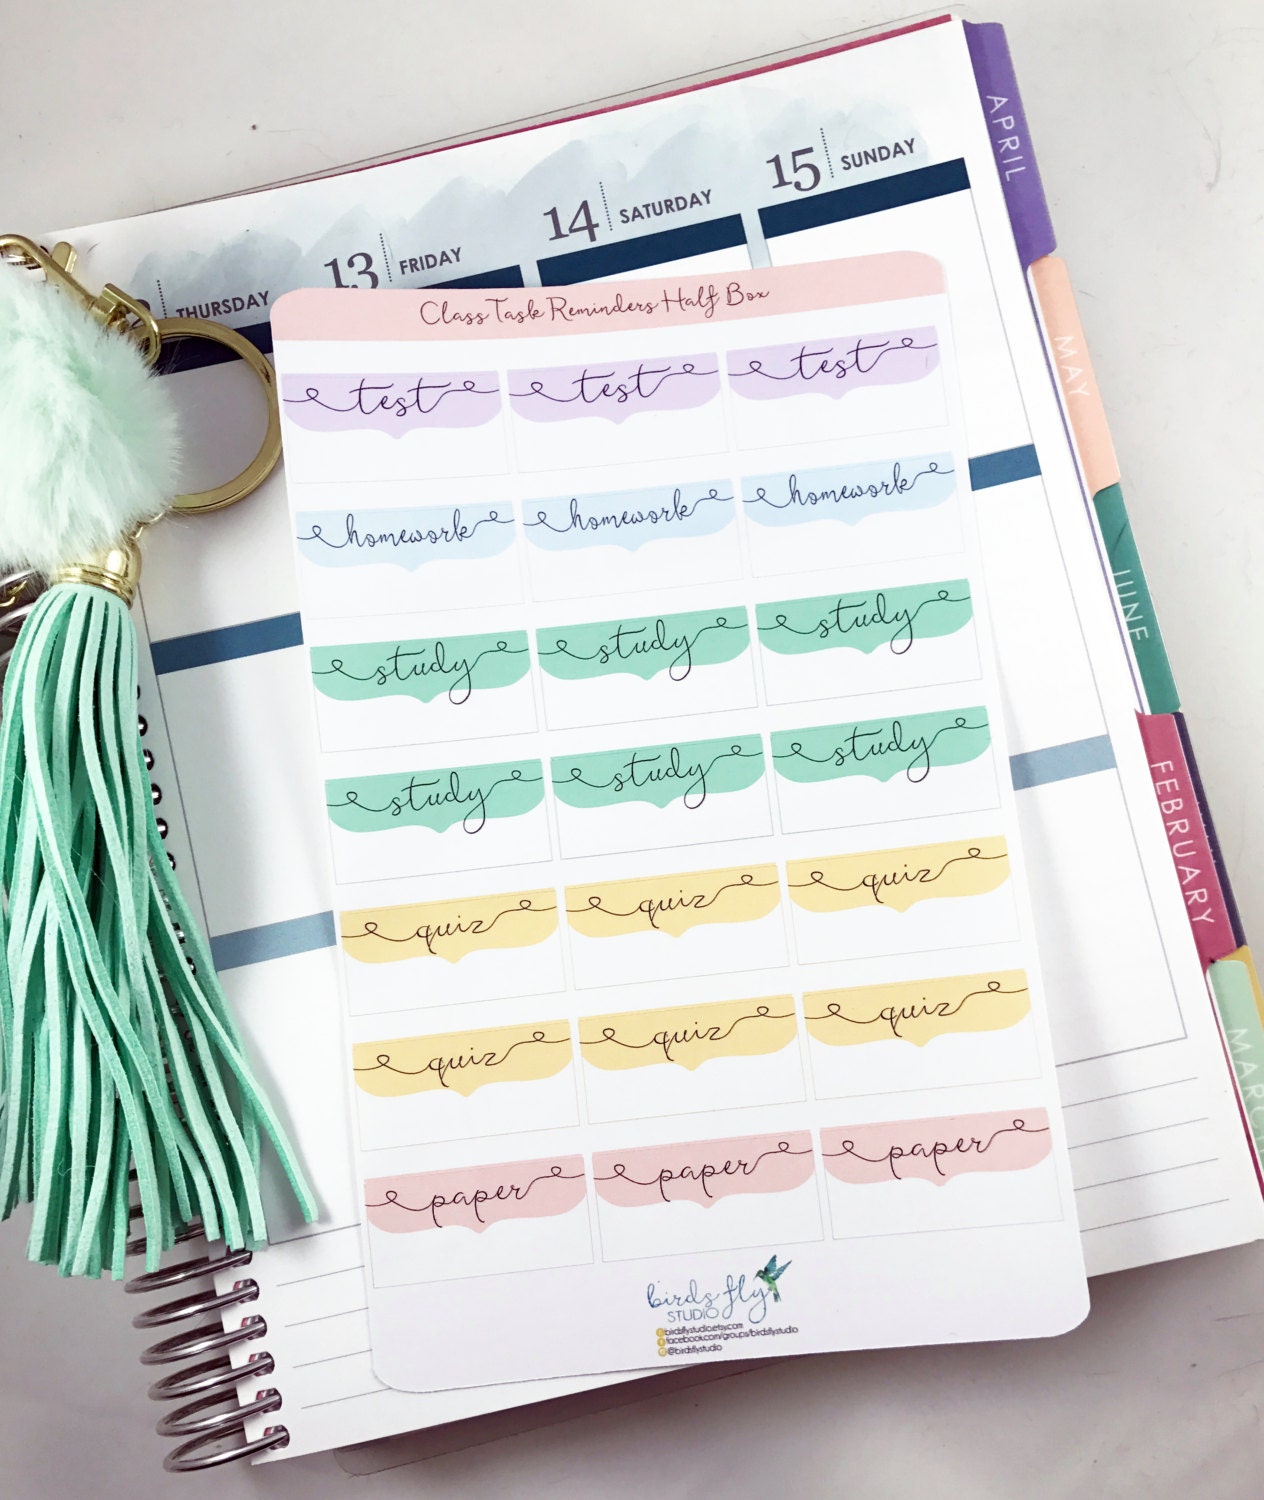 15 SUNDAY
14 SATURDAY
13 FRIDAY
THURSDAY
APRIL
MAY
JUNE
FEBRUARY
Class Task Reminders Half Box
test test test
homework homework homework
study study study
study study study
quiz quiz quiz
quiz quiz quiz
paper paper paper
birds fly
STUDIO
birdsflystudio.etsy.com
facebook.com/groups/birdsflystudio
@birdsflystudio